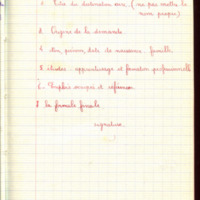 2. Titre du destinataire seul (ne pas mettre le
nom propre)
3. Origine de la demande
4. Nom, prénom, date de naissance, famille
5. études - apprentissage et formation professionnelle
6. Emplois occupés et références
8. la formule finale
signature